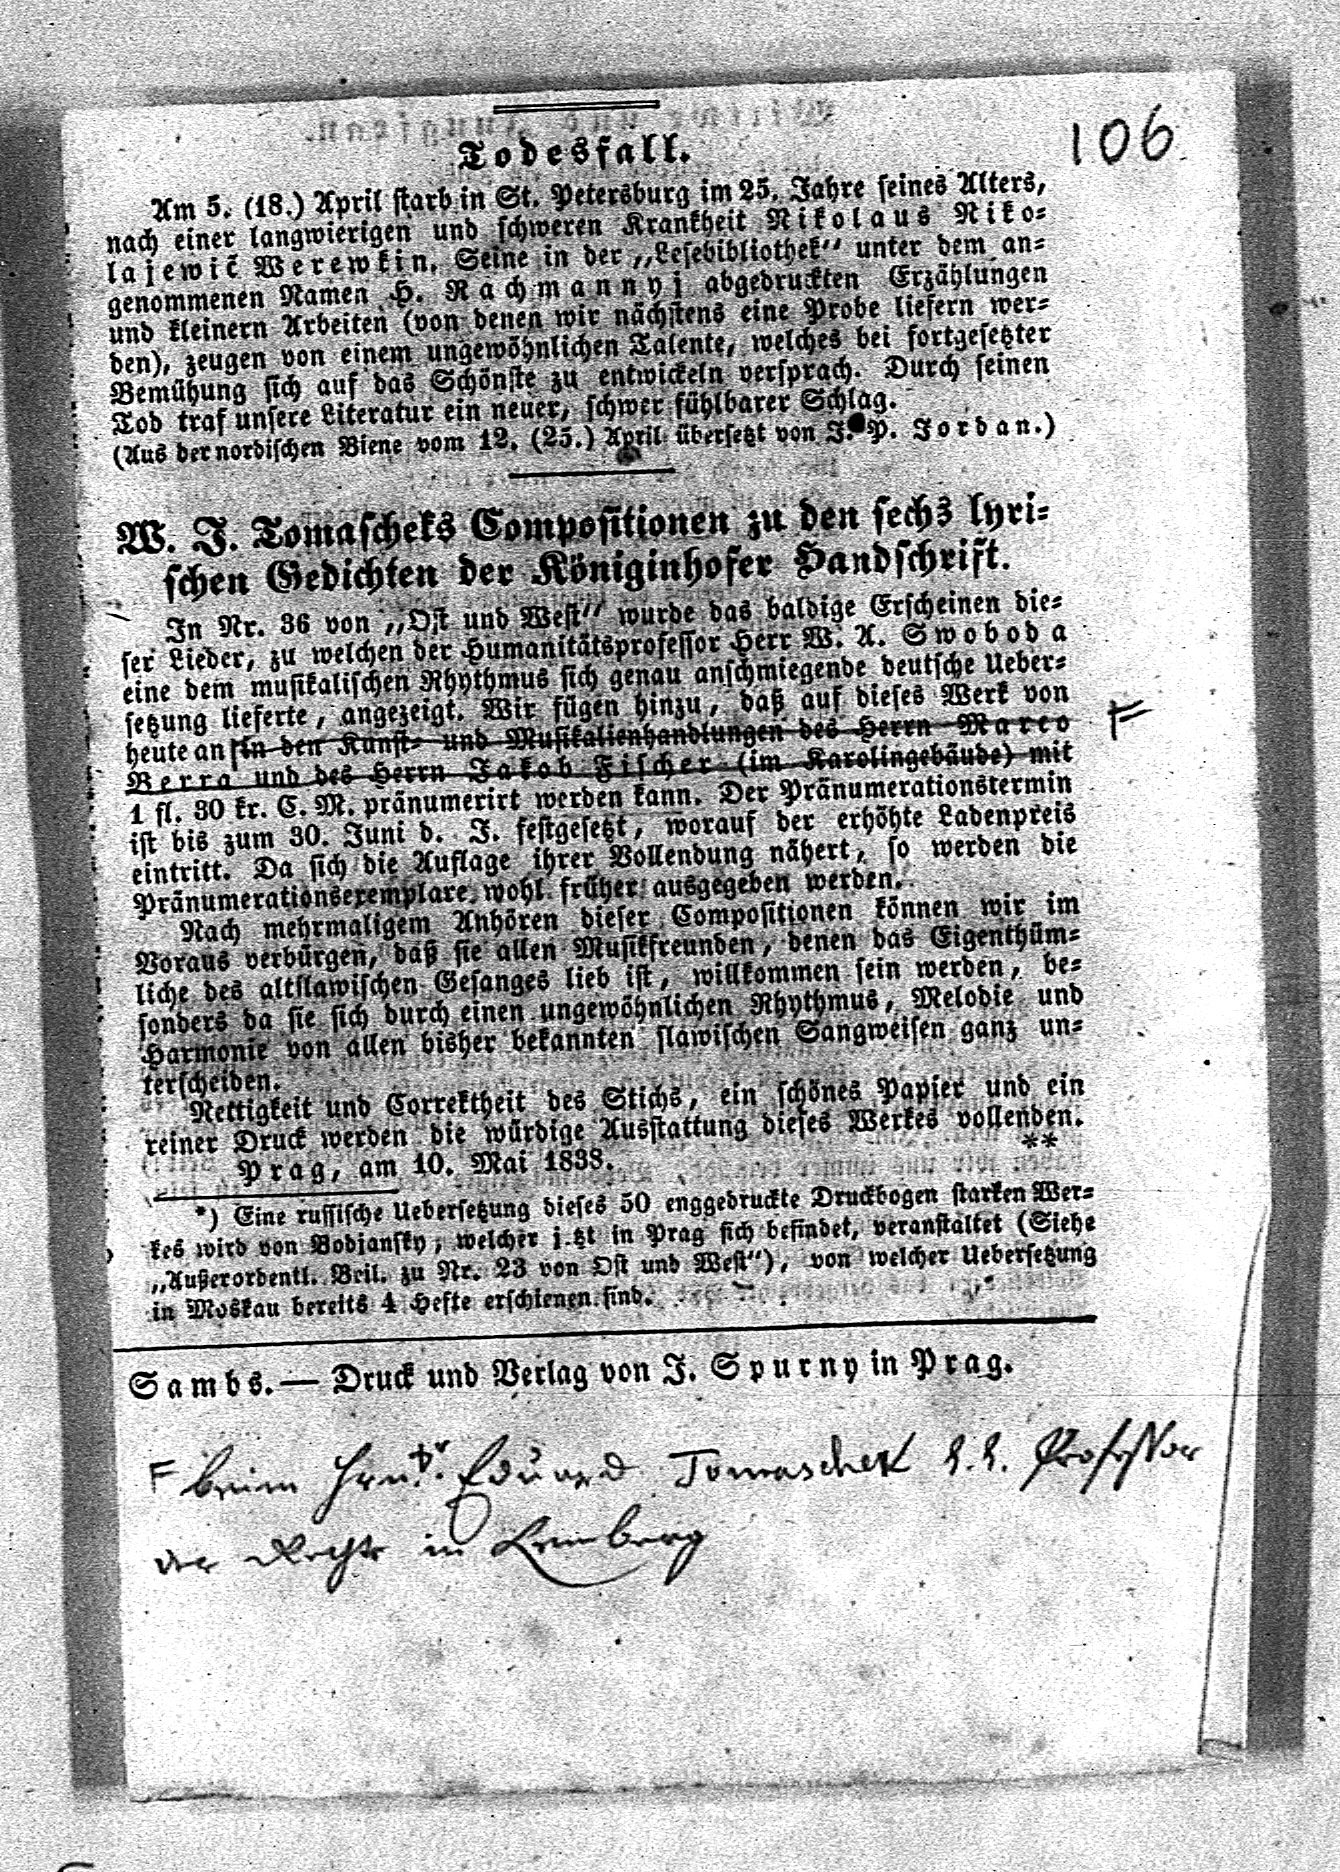 106
Todesfall.
Am 5. (18.) April starb in St. Petersburg im 25. Jahre seines Alters,
nach einer langwierigen und schweren Krankheit Nikolaus Niko-
lajewič Werewkin. Seine in der „Lesebibliothek“ unter dem an-
genommenen Namen H. Rachmannyj abgedruckten Erzählungen
und kleinern Arbeiten (von denen wir nächstens eine Probe liefern wer-
den), zeugen von einem ungewöhnlichen Talente, welches bei fortgesetzter
Bemühung sich auf das Schönste zu entwickeln versprach. Durch seinen
Tod traf unsere Literatur ein neuer, schwer fühlbarer Schlag.
(Aus der nordischen Biene vom 12. (25.) April übersetzt von J. P. Jordan.)
W. J. Tomascheks Compositionen zu den sechs lyri-
schen Gedichten der Königinhofer Handschrift.
In Nr. 36 von „Ost und West“ wurde das baldige Erscheinen die-
ser Lieder, zu welchen der Humanitätsprofessor Herr W. A. Swoboda
eine dem musikalischen Rhythmus sich genau anschmiegende deutsche Ueber-
setzung lieferte, angezeigt. Wir fügen hinzu, daß auf dieses Werk von
heute an in den Kunst- und Musikalienhandlungen des Herrn Marco F
Berra und des Herrn Jakob Fischer (im Karolingebäude) mit
1 fl. 30 kr. C. M. pränumerirt werden kann. Der Pränumerationstermin
ist bis zum 30. Juni d. J. festgesetzt, worauf der erhöhte Ladenpreis
eintritt. Da sich die Auflage ihrer Vollendung nähert, so werden die
Pränumerationsexemplare wohl früher ausgegeben werden.
Nach mehrmaligem Anhören dieser Compositionen können wir im
Voraus verbürgen, daß sie allen Musikfreunden, denen das Eigenthüm-
liche des altslawischen Gesanges lieb ist, willkommen sein werden, be-
sonders da sie sich durch einen ungewöhnlichen Rhythmus, Melodie und
Harmonie von allen bisher bekannten slawischen Sangweisen ganz un-
terscheiden.
Nettigkeit und Correktheit des Stichs, ein schönes Papier und ein
reiner Druck werden die würdige Ausstattung dieses Werkes vollenden.
Prag, am 10. Mai 1838. **
*) Eine russische Uebersetzung dieses 50 enggedruckte Druckbogen starken Wer-
kes wird von Bodjansky, welcher j.tzt in Prag sich befindet, veranstaltet (Siehe
„Außerordentl. Beil. zu Nr. 23 von Ost und West“), von welcher Uebersetzung
in Moskau bereits 4 Hefte erschienen sind.
Sambs. — Druck und Verlag von J. Spurny in Prag.
F beim Hrn. Dr. Eduard Tomaschek k. k. Professor
der Rechte in Lemberg